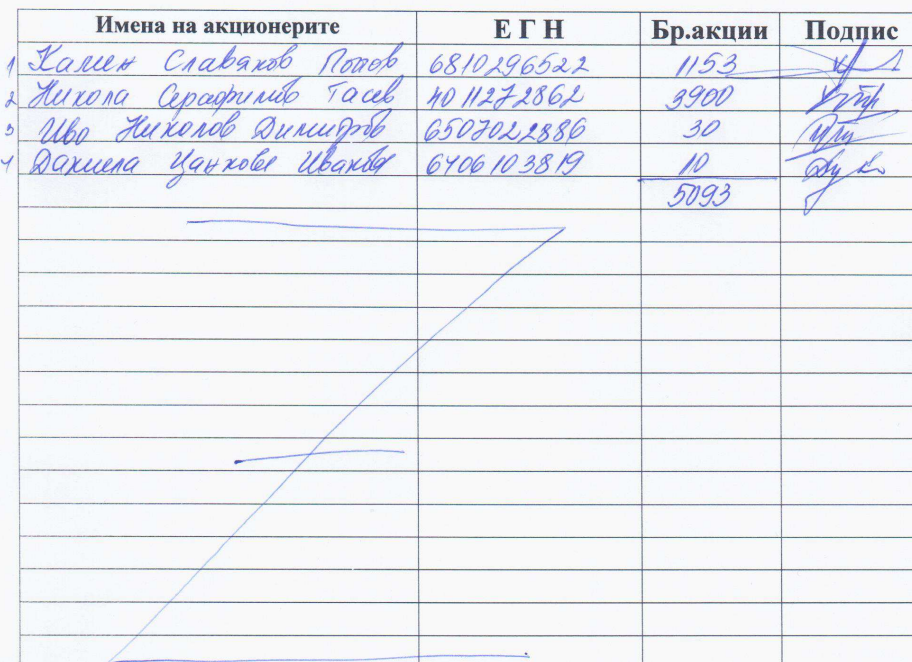 Имена на акционерите ЕГН Бр.акции Подпис
1 Камен Славянов Попов 6810296522 1153
2 Никола Серафимов Тасев 4011272862 3900
3 Иво Николов Димитров 6507022886 30
4 Даниела Цанкова Иванова 6406103819 10
5093